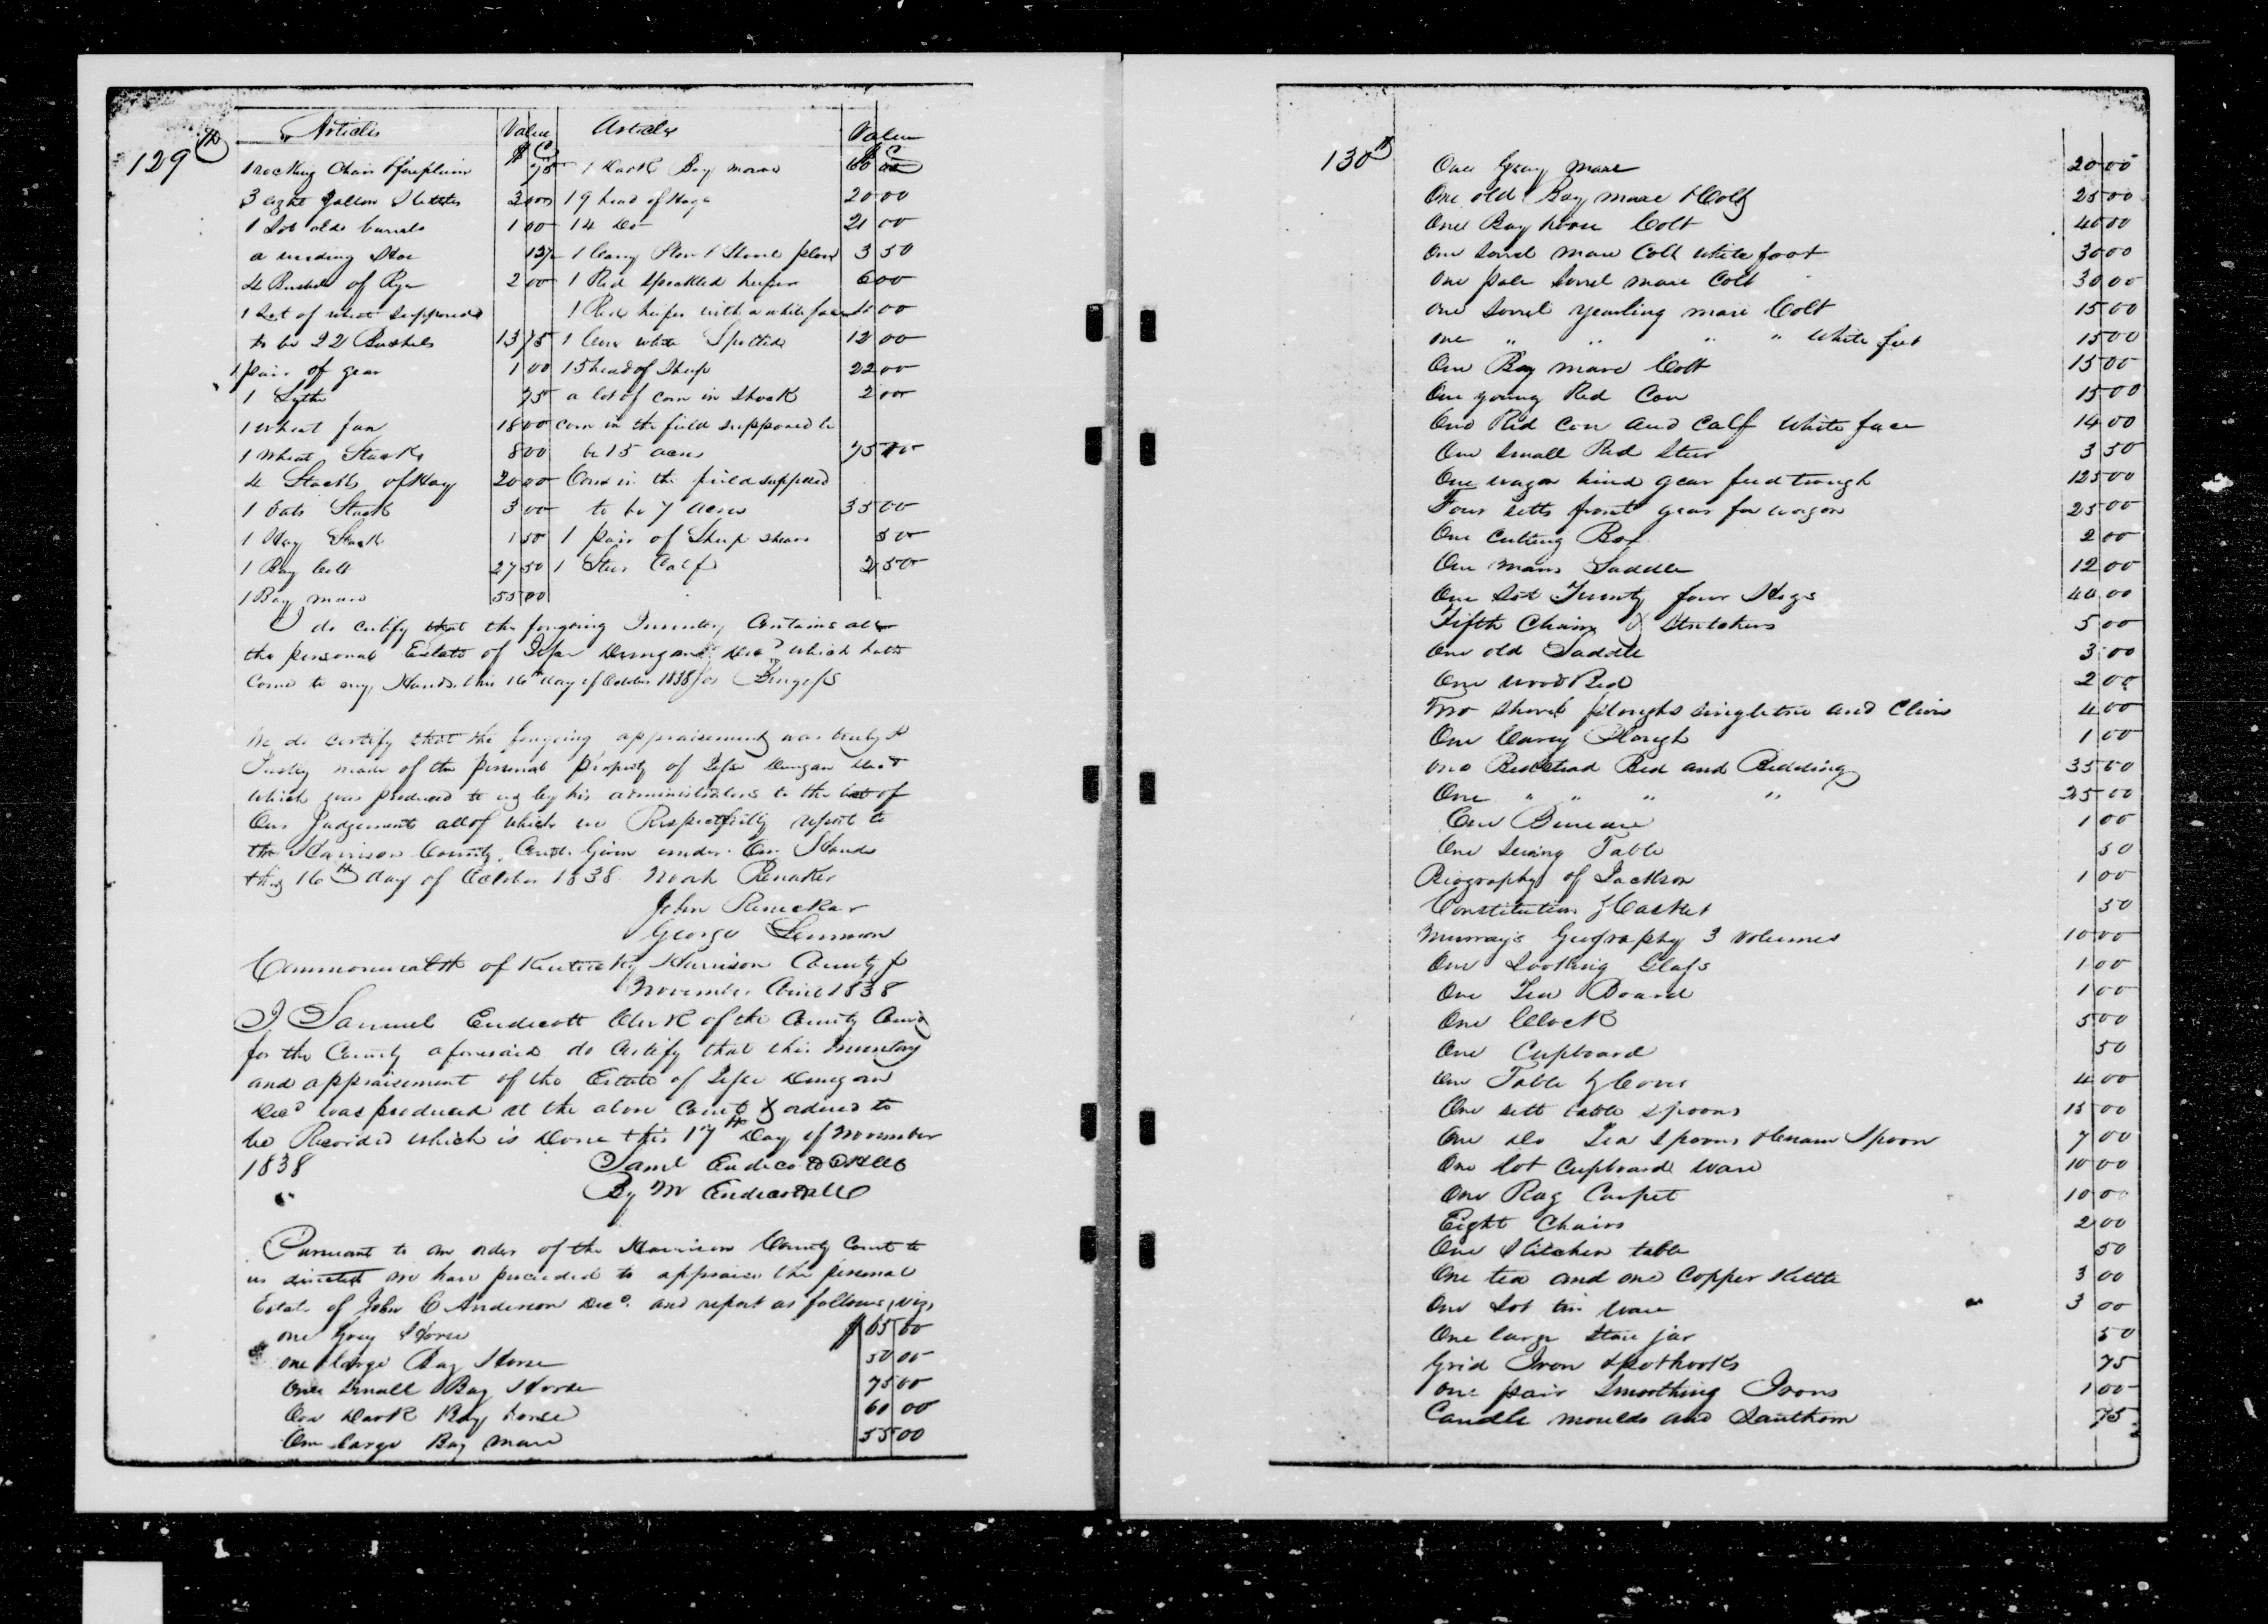 129th
Articles Value Articles Value
$ C $ C
1 rocking Chair & foreplain 75 1 Dark Bay mare 60 00
3 eight gallon Kettles 3 00 19 head of Hogs 20 00
1 Lot old barrels 1 00 14 Do 21 00
a weeding Hoe 12½ 1 Carey Plow 1 Shovel plow 3 50
4 Bushels of Rye 2 00 1 Red Speckled heifer 6 00
1 Lot of wheat supposed 1 Red heifer with a white face 10 00
to be 22 Bushels 13 75 1 Cow white Spotted 12 00
1 pair of gear 1 00 15 head of Sheep 22 00
1 Sythe 75 a lot of corn in Shock 2 00
1 wheat fan 18 00 corn in the field supposed to
1 Wheat Stack 8 00 be 15 acres 75 00
4 Stacks of Hay 20 00 Corn in the field supposed
1 Oats Stack 3 00 to be 7 acres 35 00
1 Hay Stack 1 50 1 pair of Sheep shears 50
1 Bay Colt 27 50 1 Steer Calf 2 50
1 Bay mare 55 00
I do certify that the foregoing Inventory Contains all
the personal Estate of Jesse Dungan Decd which hath
Come to my Hands this 16th day of October 1838
We do certify that the foregoing appraisement was truly &
Justly made of the personal Property of Jesse Dungan Decd
which was produced to us by his administrators to the best of
Our Judgement all of which we Respectfully report to
the Harrison County Court Given under Our Hands
this 16th day of October 1838 Noah Renaker
John Renekar
George Lemmon
Commonwealth of Kentucky Harrison County
November Court 1838
I Samuel Endicott Clerk of the County Court
for the County aforesaid do Certify that this Inventory
and appraisement of the Estate of Jesse Dungan
Decd was produced at the above Court & ordered to
be Recorded which is Done this 17th Day of November
1838 Saml Endicott CHCC
By W Endicott DC
Pursuant to an order of the Harrison County Court to
us directed we have proceeded to appraise the personal
Estate of John C Anderson Decd. and report as follows, viz,
one Grey Horse $ 65 00
one large Bay Horse 50 00
One Small Bay Horse 75 00
One Dark Bay horse 60 00
One large Bay mare 55 00
130th
One Gray mare 20 00
One old Bay mare & Colt 25 00
One Bay horse Colt 40 00
One Sorrel mare Colt white foot 30 00
One pale Sorrel mare Colt 30 00
one Sorrel yearling mare Colt 15 00
one " " " " White feet 15 00
One Bay mare Colt 15 00
One young Red Cow 15 00
One Red Cow and Calf White face 14 00
One Small Red Steer 3 50
One wagon hind gear feed trough 125 00
Four setts front gear for wagon 25 00
One Cutting Box 2 00
One mans Saddle 12 00
One Lot Twenty four Hogs 40 00
Fifth Chain & Stretchers 5 00
One old Saddle 3 00
One wood Bed 2 00
Two Shovel ploughs singletree and Clevis 4 00
One Carey Plough 1 00
one Bedstead Bed and Bedding 35 00
One " " " " 25 00
One Bureau 1 00
One Sewing Table 50
Biography of Jackson 1 00
Constitution & Casket 50
Murrays Geography 3 volumes 10 00
One Looking Glass 1 00
One Tea Board 1 00
One Clock 5 00
One Cupboard 50
One Table & Cover 4 00
One sett table spoons 15 00
One Do Tea Spoons & Cream Spoon 7 00
One Lot Cupboard ware 10 00
One Rag Carpet 10 00
Eight Chairs 2 00
One Kitchen table 50
One tea and one Copper Kettle 3 00
One Lot tin ware 3 00
One large stone jar 50
Grid Iron & pothooks 75
One pair Smoothing Irons 1 00
Candle moulds and Lanthorn 75